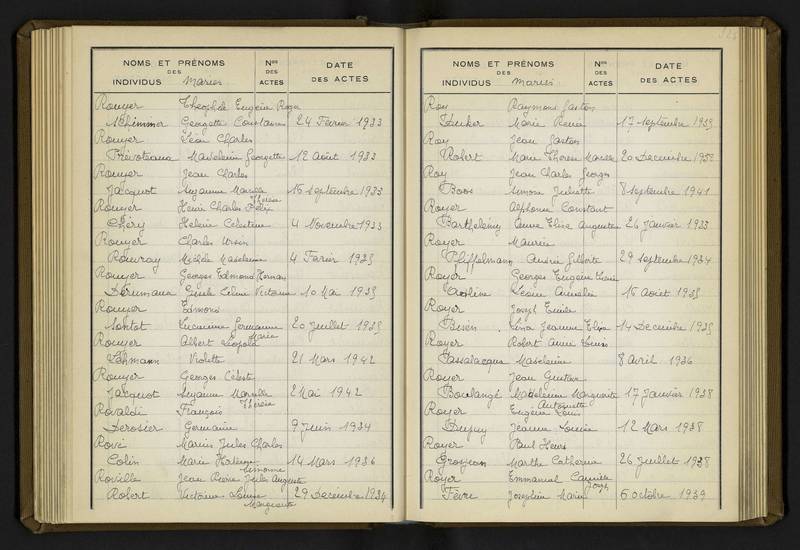 NOMS ET PRÉNOMS Nos DATE
DES DES DES ACTES
INDIVIDUS Mariés ACTES
Rouyer Théophile Eugène Roger
Schimmer Georgette Constance 24 Février 1933
Rouyer Léon Charles
Prévoteaux Madeleine Georgette 12 Août 1933
Rouyer Jean Charles
Jacquot Suzanne Marcelle Thérèse 16 Septembre 1933
Rouyer Henri Charles Félix
Chéry Hélène Célestine 4 Novembre 1933
Rouyer Charles Ursin
Rouvray Michèle Madeleine 4 Février 1935
Rouyer Georges Edmond Hernan
Derumaux Gisèle Céline Victorine 10 Mai 1935
Rouyer Edmond
Lucienne Germaine 20 Juillet 1935
Rouyer Albert Léopold Marie
Lehmann Violette 21 Mars 1942
Rouyer Georges Céleste
Jacquot Suzanne Marcelle Thérèse 2 Mai 1942
Rovaldi François
Derosier Germaine 9 Juin 1934
Rové Marius Jules Charles
Colin Marie Simonne 14 Mars 1936
Roville Jean Pierre Jules Auguste
Robert Victorine Louise Marguerite 29 Décembre 1934
NOMS ET PRÉNOMS Nos DATE
DES DES DES ACTES
INDIVIDUS Mariés ACTES
Roy Raymond Gaston
Marie Renée 17 Septembre 1935
Roy Jean Gaston
Robert Marie Thérèse Marcelle 20 Décembre
Roy Jean Charles Georges
Boos Simone Juliette 8 Septembre 1941
Royer Alphonse Constant
Barthelémy Anne Elise Augustine 26 Janvier 1933
Royer Maurice
Pfiffelmann Andrée Gilberte 29 Septembre 1934
Royer Georges Eugène
Léonie Amélie 16 Août 1935
Royer Joseph Emile
Bisen Léna Jeanne Elise 14 Décembre 1935
Royer Robert Anne Louis
Passalacqua Madeleine 8 Avril 1936
Royer Jean Gustave
Boulangé Madeleine Marguerite Antoinette 17 Janvier 1938
Royer Eugène Louis
Dupuy Jeanne Louise 12 Mars 1938
Royer Paul Henri
Grosjean Marthe Catherine 26 Juillet 1938
Royer Emmanuel Camille Joseph
Fèvre Joséphine Marie 6 Octobre 1939